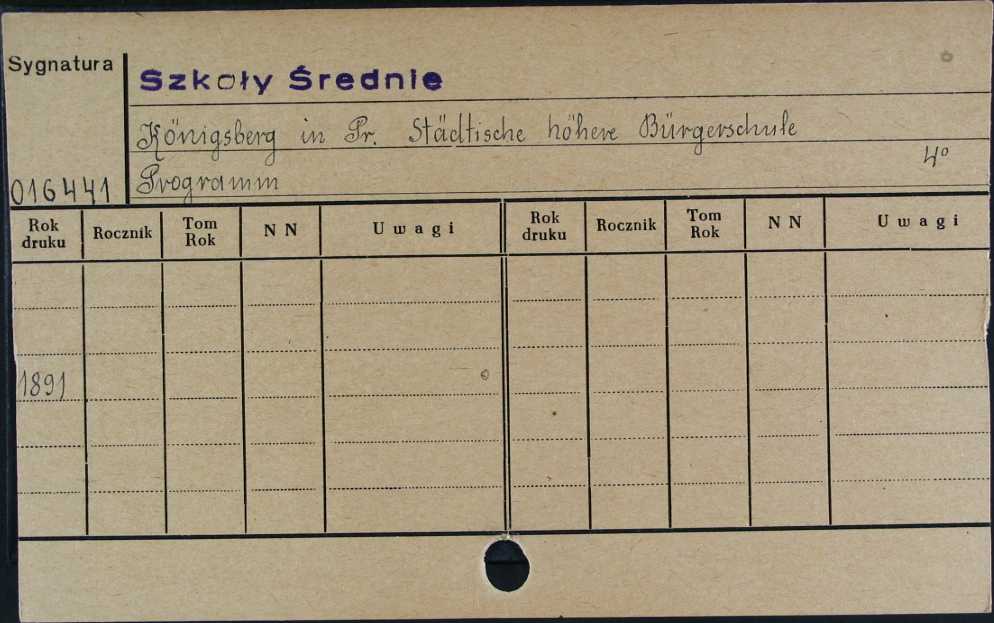 Sygnatura
Szkoły Średnie
Königsberg in Pr. Städtische höhere Bürgerschule
4°
016441
Programm
Rok druku Rocznik Tom Rok N N Uwagi Rok druku Rocznik Tom Rok N N Uwagi
1891